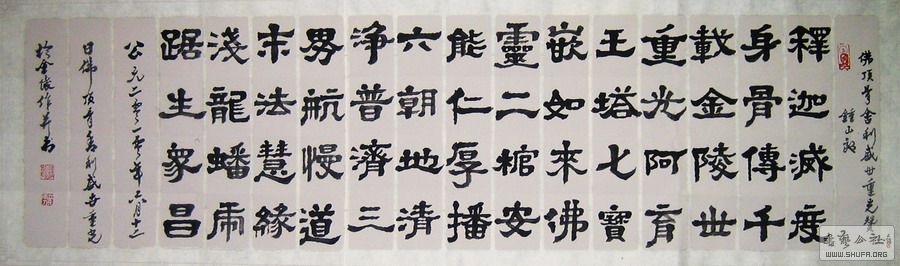 佛頂骨舍利盛世重光贊
鍾山
釋迦滅度
身骨傳千
載金陵世
重光阿育
王塔七寶
嵌如來佛
靈二棺安
能仁厚播
六朝地清
净普濟三
界航慢道
末法慧緣
淺龍蟠虎
踞生眾昌
公元二零一零年六月十二
日佛頂骨舍利盛世重光
於金陵作並書
書藝公社
WWW.SHUFA.ORG